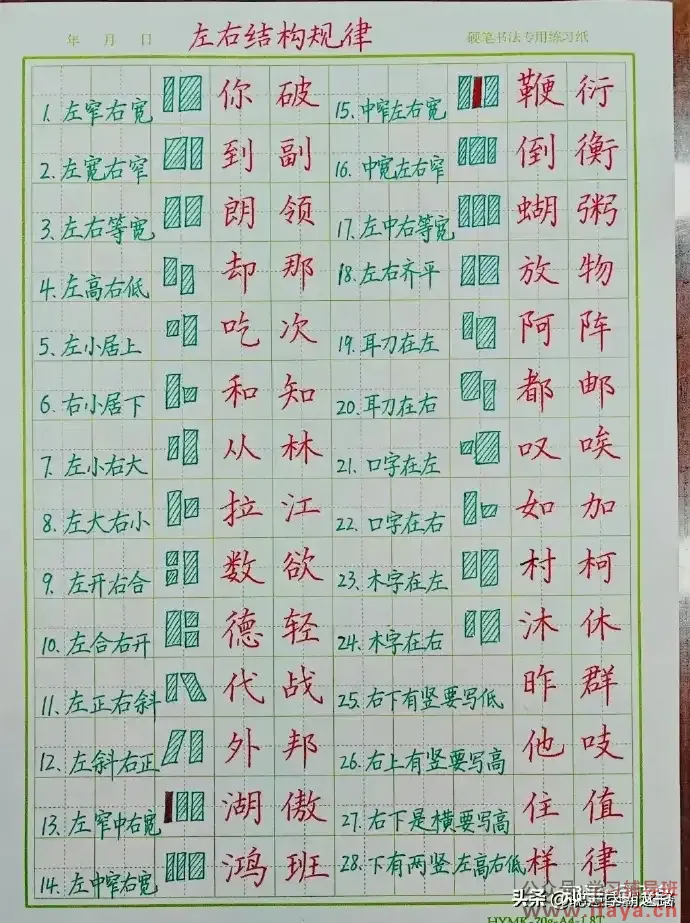 年 月 日 左右结构规律 硬笔书法专用练习纸
1. 左窄右宽 你 破
2. 左宽右窄 到 副
3. 左右等宽 朗 领
4. 左高右低 却 那
5. 左小居上 吃 次
6. 右小居下 和 知
7. 左小右大 从 林
8. 左大右小 拉 江
9. 左开右合 数 欲
10. 左合右开 德 轻
11. 左正右斜 代 战
12. 左斜右正 外 邦
13. 左窄中右宽 湖 傲
14. 左中窄右宽 鸿 班
15. 中窄左右宽 鞭 衍
16. 中宽左右窄 倒 衡
17. 左中右等宽 蝴 粥
18. 左右齐平 放 物
19. 耳刀在左 阿 阵
20. 耳刀在右 都 邮
21. 口字在左 叹 唉
22. 口字在右 如 加
23. 木字在左 村 柯
24. 木字在右 沐 休
25. 右下有竖要写低 昨 群
26. 右上有竖要写高 他 吱
27. 右下是横要写高 住 值
28. 下有两竖左高右低 样 律